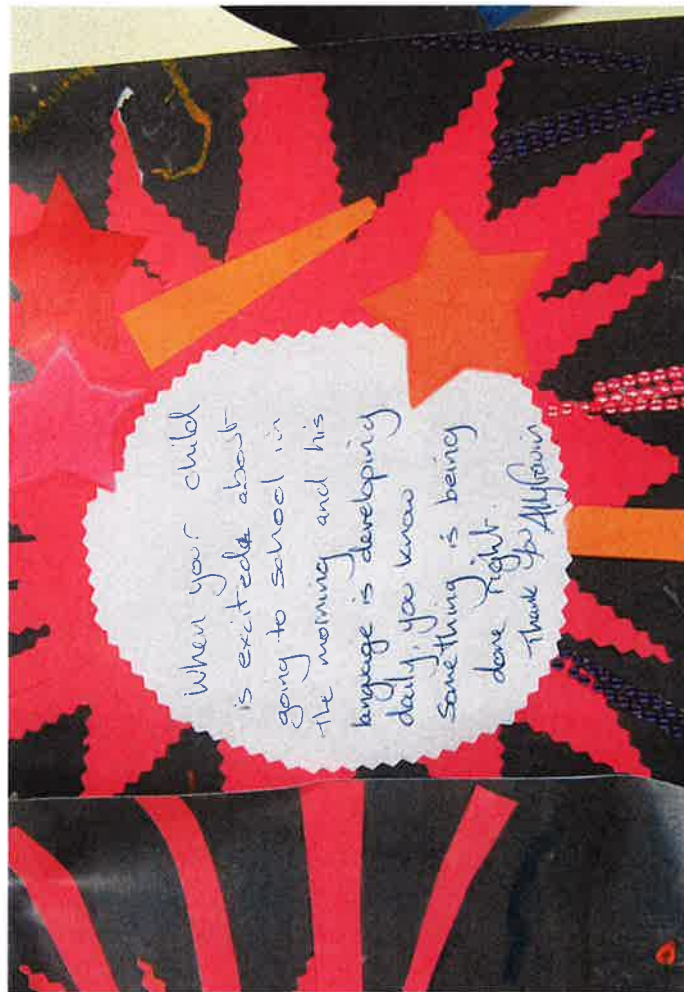 When your child
is excited about
going to school in
the morning and his
language is developing
daily, you know
something is being
done right.
Thank you